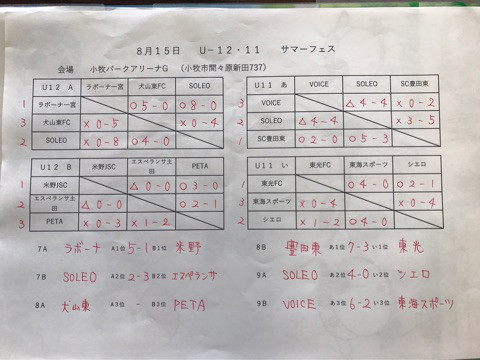 8月15日 U-12・11 サマーフェス
会場 小牧パークアリーナG (小牧市間々原新田737)
U12 A ラボーナ一宮 犬山東FC SOLEO
1 ラボーナ一宮 ○5-0 ○8-0
3 犬山東FC ×0-5 ×0-4
2 SOLEO ×0-8 ○4-0
U11 あ VOICE SOLEO SC豊田東
3 VOICE △4-4 ×0-2
2 SOLEO △4-4 ×3-5
1 SC豊田東 ○2-0 ○5-3
U12 B 米野JSC エスペランサ土田 PETA
1 米野JSC △0-0 ○3-0
2 エスペランサ土田 △0-0 ○2-1
3 PETA ×0-3 ×1-2
U11 い 東光FC 東海スポーツ シエロ
1 東光FC ○4-0 ○2-1
3 東海スポーツ ×0-4 ×0-4
2 シエロ ×1-2 ○4-0
7A ラボーナ A1位 5-1 B1位 米野
7B SOLEO A2位 2-3 B2位 エスペランサ
8A 犬山東 A3位 - B3位 PETA
8B 豊田東 あ1位 7-3 い1位 東光
9A SOLEO あ2位 4-0 い2位 シエロ
9B VOICE あ3位 6-2 い3位 東海スポーツ